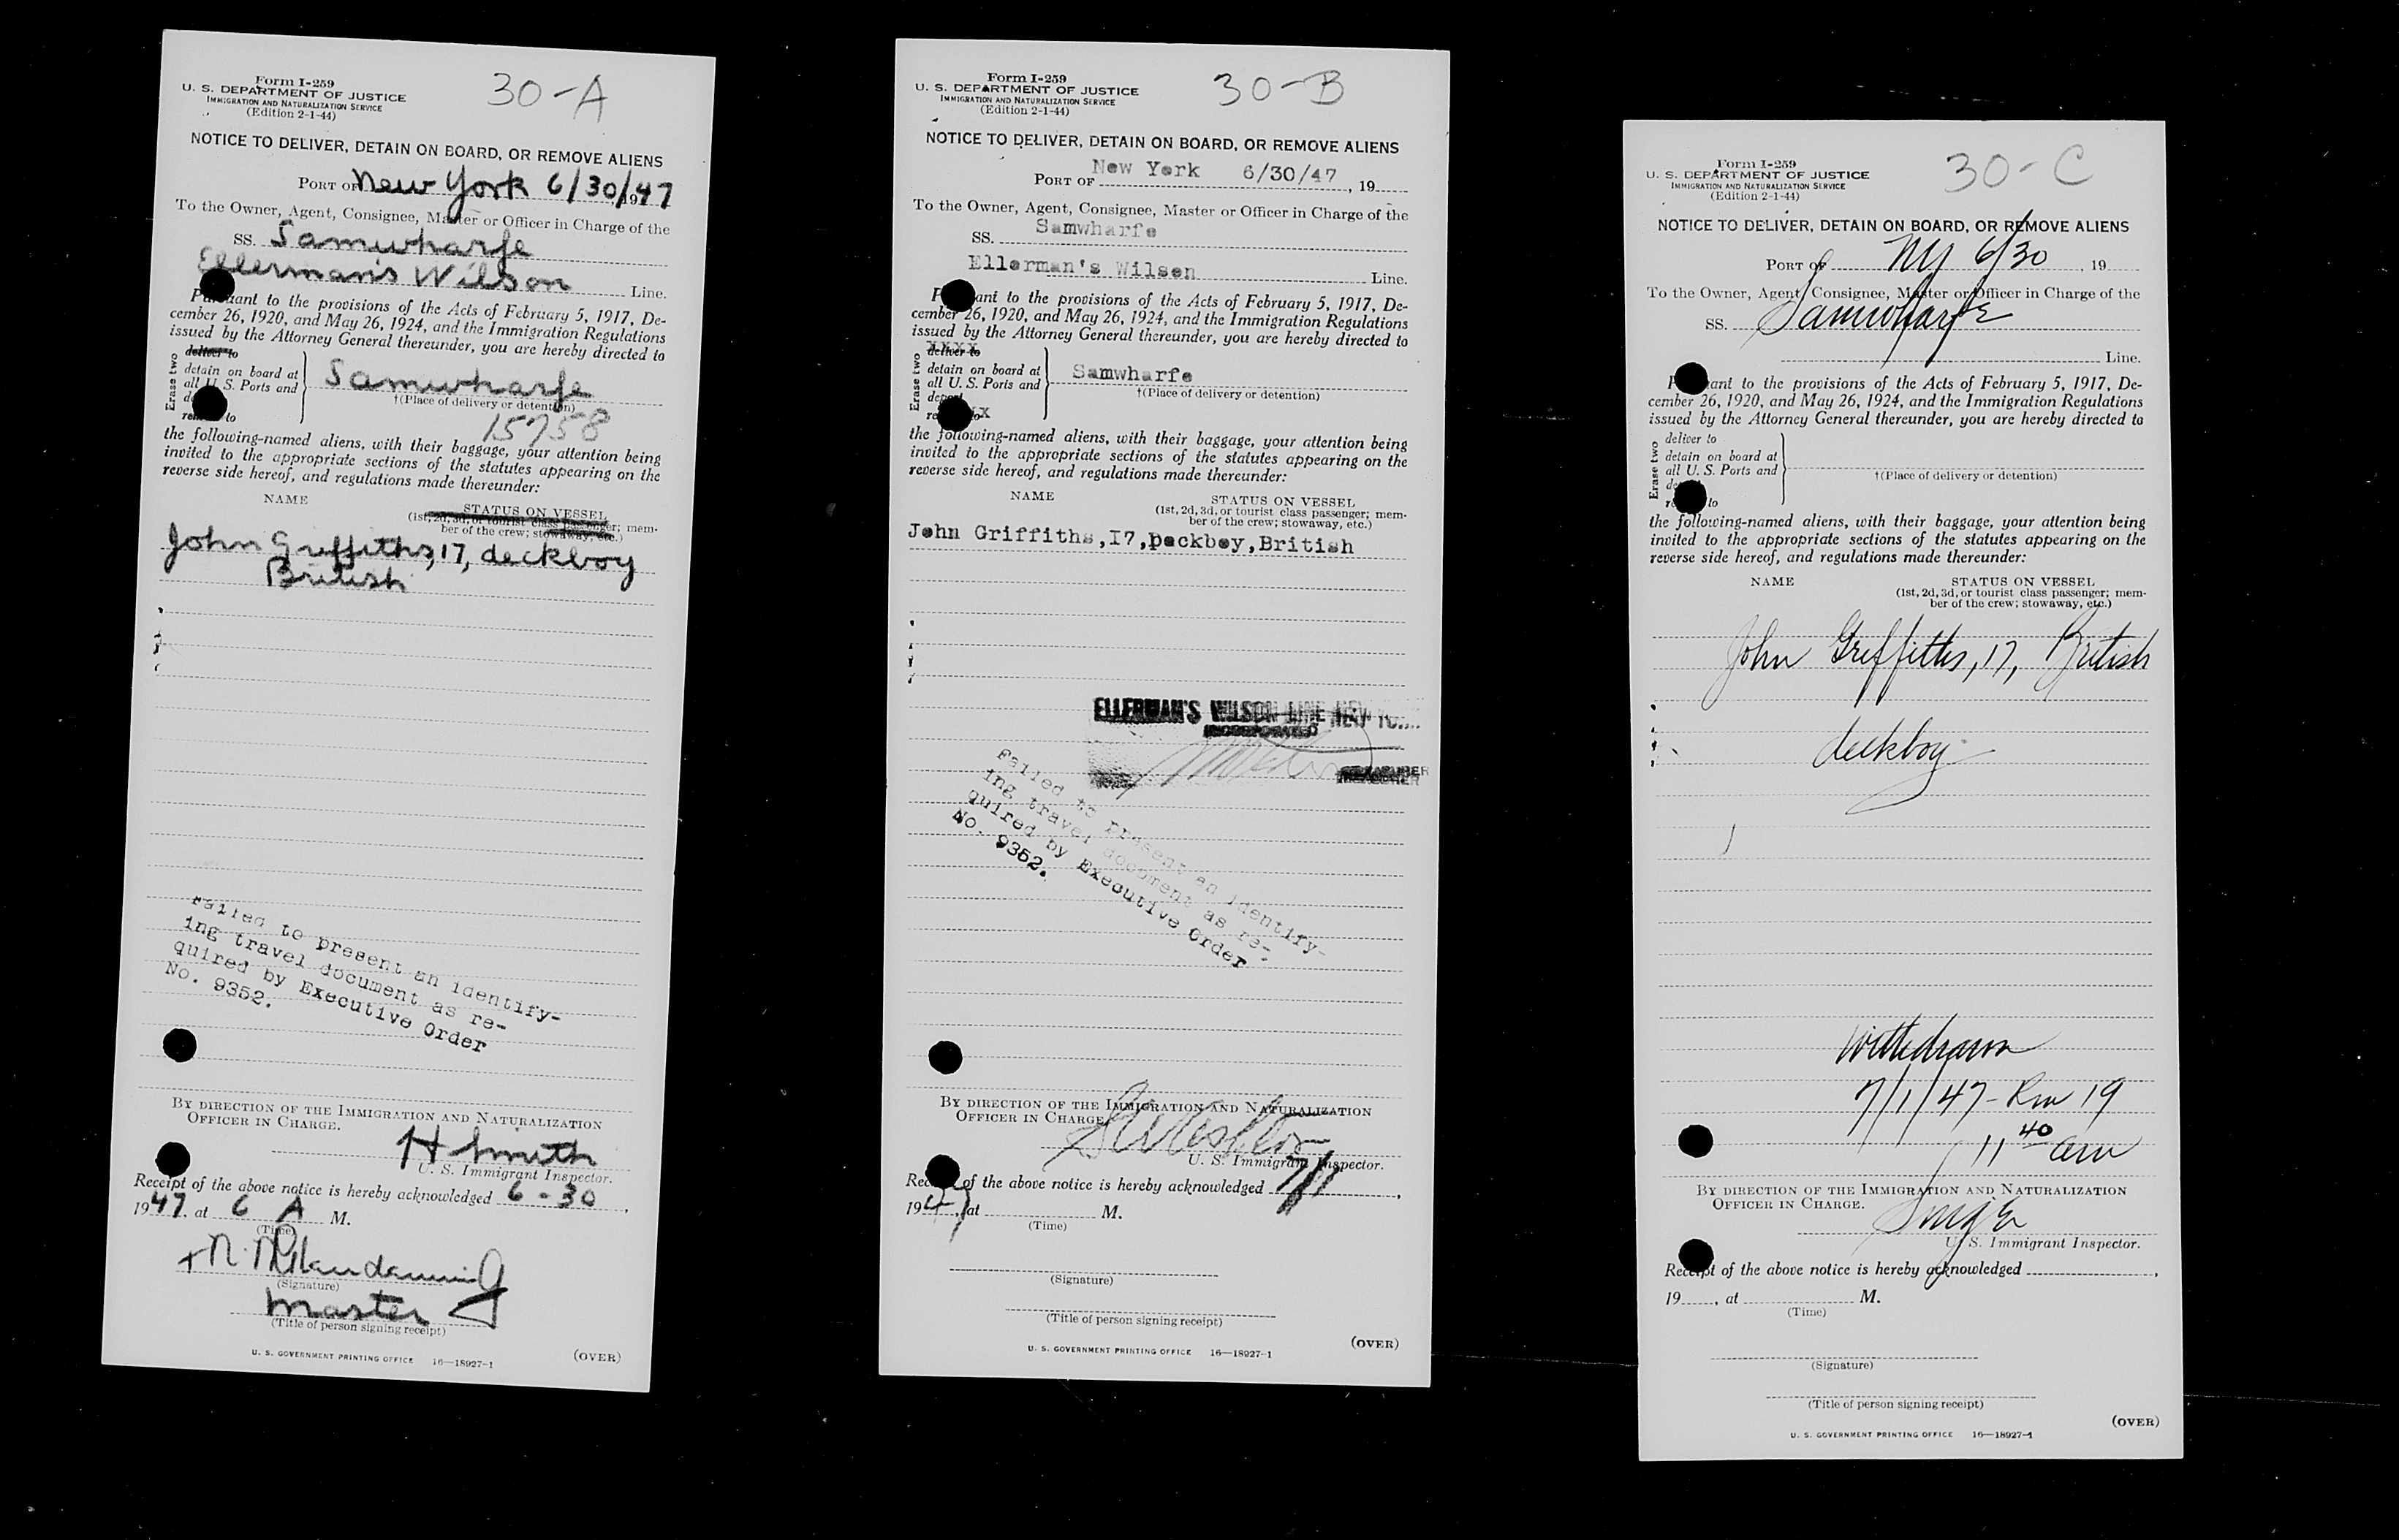 Form I-259
U. S. DEPARTMENT OF JUSTICE
IMMIGRATION AND NATURALIZATION SERVICE
(Edition 2-1-44)
30-A
NOTICE TO DELIVER, DETAIN ON BOARD, OR REMOVE ALIENS
PORT OF New York 6/30/47
To the Owner, Agent, Consignee, Master or Officer in Charge of the
SS. Samwharfe
Ellerman's Wilson Line.
to the provisions of the Acts of February 5, 1917, De-
cember 26, 1920, and May 26, 1924, and the Immigration Regulations
issued by the Attorney General thereunder, you are hereby directed to
Erase two
deliver to
detain on board at
all U. S. Ports and
to
Samwharfe
†(Place of delivery or detention)
15758
the following-named aliens, with their baggage, your attention being
invited to the appropriate sections of the statutes appearing on the
reverse side hereof, and regulations made thereunder:
NAME
STATUS ON VESSEL
(1st, 2d, 3d, or tourist class passenger; mem-
ber of the crew; stowaway, etc.)
John Griffiths, 17, deckboy
British
Failed to present an identify-
ing travel document as re-
quired by Executive Order
No. 9352.
BY DIRECTION OF THE IMMIGRATION AND NATURALIZATION
OFFICER IN CHARGE.
H Smith
U. S. Immigrant Inspector.
Receipt of the above notice is hereby acknowledged 6-30,
1947. at 6 A M.
(Time)
(Signature)
Master
(Title of person signing receipt)
U. S. GOVERNMENT PRINTING OFFICE 16—18927-1
(OVER)
Form I-259
U. S. DEPARTMENT OF JUSTICE
IMMIGRATION AND NATURALIZATION SERVICE
(Edition 2-1-44)
30-B
NOTICE TO DELIVER, DETAIN ON BOARD, OR REMOVE ALIENS
PORT OF New York 6/30/47, 19
To the Owner, Agent, Consignee, Master or Officer in Charge of the
SS. Samwharfe
Ellerman's Wilsen Line.
to the provisions of the Acts of February 5, 1917, De-
cember 26, 1920, and May 26, 1924, and the Immigration Regulations
issued by the Attorney General thereunder, you are hereby directed to
Erase two
deliver to
detain on board at
all U. S. Ports and
Samwharfe
†(Place of delivery or detention)
the following-named aliens, with their baggage, your attention being
invited to the appropriate sections of the statutes appearing on the
reverse side hereof, and regulations made thereunder:
NAME
STATUS ON VESSEL
(1st, 2d, 3d, or tourist class passenger; mem-
ber of the crew; stowaway, etc.)
John Griffiths,I7,Deckboy,British
ELLERMAN'S WILSON LINE NEW
INCORPORATED
Failed to present an identify-
ing travel document as re-
quired by Executive Order
No. 9352.
BY DIRECTION OF THE IMMIGRATION AND NATURALIZATION
OFFICER IN CHARGE
U. S. Immigrant Inspector.
of the above notice is hereby acknowledged 7/1,
1947, at M.
(Time)
(Signature)
(Title of person signing receipt)
(OVER)
U. S. GOVERNMENT PRINTING OFFICE 16—18927-1
Form I-259
U. S. DEPARTMENT OF JUSTICE
IMMIGRATION AND NATURALIZATION SERVICE
(Edition 2-1-44)
30-C
NOTICE TO DELIVER, DETAIN ON BOARD, OR REMOVE ALIENS
PORT OF NY 6/30, 19
To the Owner, Agent, Consignee, Master or Officer in Charge of the
SS. Samwharfe
Line.
to the provisions of the Acts of February 5, 1917, De-
cember 26, 1920, and May 26, 1924, and the Immigration Regulations
issued by the Attorney General thereunder, you are hereby directed to
Erase two
deliver to
detain on board at
all U. S. Ports and
to
†(Place of delivery or detention)
the following-named aliens, with their baggage, your attention being
invited to the appropriate sections of the statutes appearing on the
reverse side hereof, and regulations made thereunder:
NAME
STATUS ON VESSEL
(1st, 2d, 3d, or tourist class passenger; mem-
ber of the crew; stowaway, etc.)
John Griffiths, 17, British
deckboy
Withdrawn
7/1/47 - Rm 19
11 40 am
BY DIRECTION OF THE IMMIGRATION AND NATURALIZATION
OFFICER IN CHARGE.
U. S. Immigrant Inspector.
Receipt of the above notice is hereby acknowledged ,
19 , at M.
(Time)
(Signature)
(Title of person signing receipt)
(OVER)
U. S. GOVERNMENT PRINTING OFFICE 16—18927-1